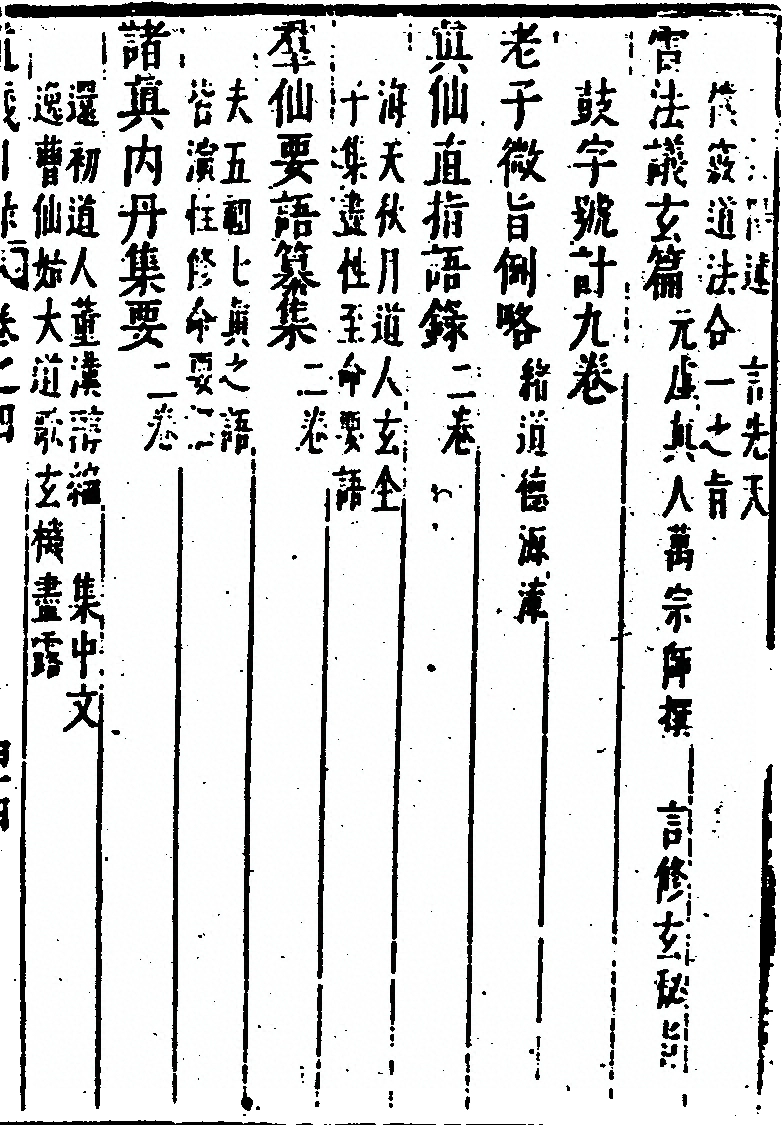 言先天
道法合一之旨
雷法議玄篇 元虛真人萬宗師撰 言修玄秘
鼓字號計九卷
老子微旨例略 緒道德源
真仙直指語錄 二卷
海天秋月道人玄全
十集盡性至命要語
羣仙要語纂集 二卷
夫五祖七真之語
皆演性修命要
諸真內丹集要 二卷
還初道人董漢醇編 集中文
逸曹仙姑大道歌玄機盡露
卷之四